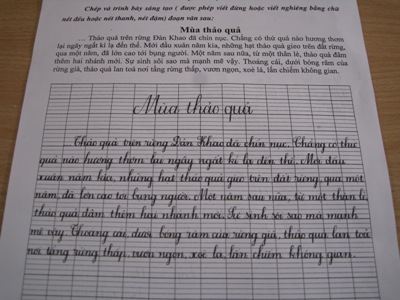 Chép và trình bày sáng tạo ( được phép viết đứng hoặc viết nghiêng bằng chữ
nét đều hoặc nét thanh, nét đậm) đoạn văn sau:
Mùa thảo quả
... Thảo quả trên rừng Đản Khao đã chín nục. Chẳng có thứ quả nào hương thơm
lại ngây ngất kì lạ đến thế. Mới đầu xuân năm kia, những hạt thảo quả gieo trên đất rừng,
qua một năm, đã lớn cao tới bụng người. Một năm sau nữa, từ một thân lẻ, thảo quả đâm
thêm hai nhánh mới. Sự sinh sôi sao mà mạnh mẽ vậy. Thoáng cái, dưới bóng râm của
rừng già, thảo quả lan toả nơi tầng rừng thấp, vươn ngọn, xoè lá, lấn chiếm không gian.
Mùa thảo quả
Thảo quả trên rừng Đản Khao đã chín nục. Chẳng có thứ
quả nào hương thơm lại ngây ngất kì lạ đến thế. Mới đầu
xuân năm kia, những hạt thảo quả gieo trên đất rừng, qua một
năm, đã lớn cao tới bụng người. Một năm sau nữa, từ một thân lẻ,
thảo quả đâm thêm hai nhánh mới. Sự sinh sôi sao mà mạnh
mẽ vậy. Thoáng cái, dưới bóng râm của rừng già, thảo quả lan toả
nơi tầng rừng thấp, vươn ngọn, xoè lá, lấn chiếm không gian.